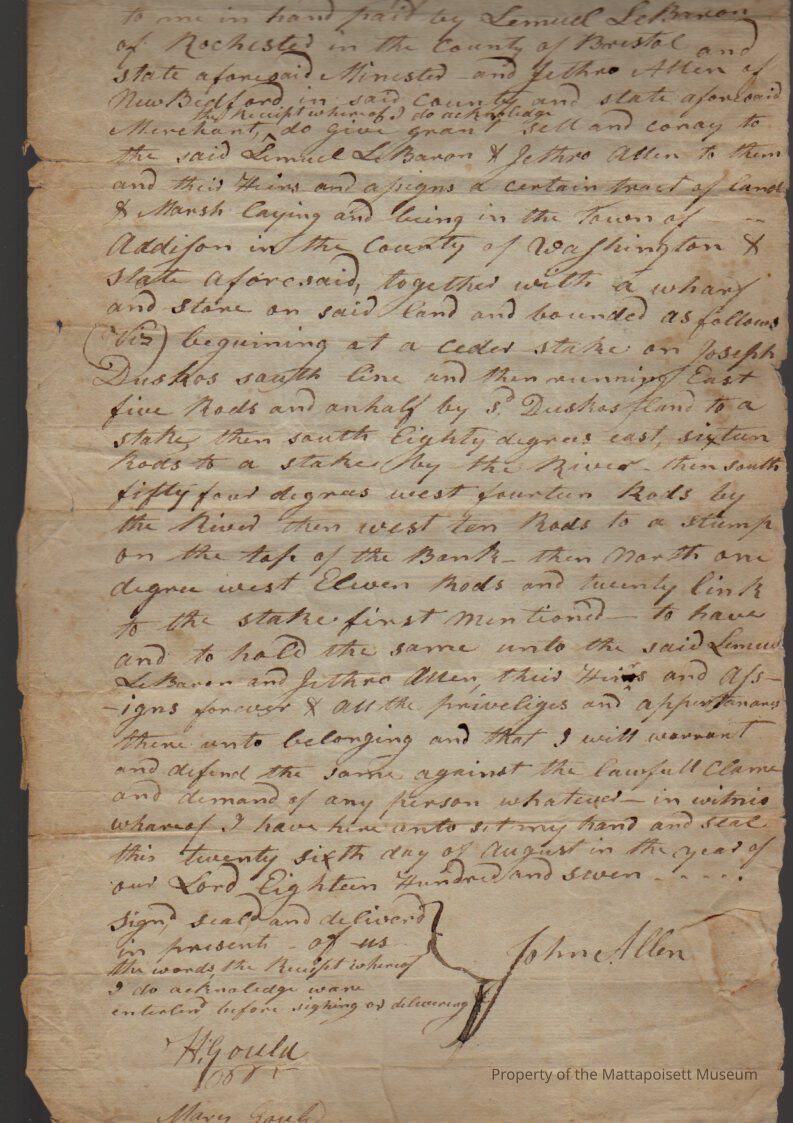 to me in hand paid by Lemuel LeBaron
of Rochester in the County of Bristol and
state aforesaid Minister and Jethro Allen of
New Bedford in said County and state aforesaid
the Receipt whereof I do acknoledge
Merchant, do give grant sell and convay to
the said Lemuel LeBaron & Jethro Allen to them
and their Heirs and assigns a certain tract of land
& Marsh Laying and being in the Town of
Addison in the County of Washington &
State aforesaid, together with a wharf
and store on said land and bounded as follows
(Viz) beguining at a ceder stake on Joseph
Duskos south line and then running East
five Rods and anhalf by sd. Duskos land to a
stake then south Eighty degrees east, sixteen
Rods to a stake by the River - then south
fifty four degrees west fourteen Rods by
the River then west ten Rods to a stump
on the top of the Bank - then North one
degree west Eleven Rods and twenty link
to the stake first mentioned - to have
and to hold the same unto the said Lemuel
LeBaron and Jethro Allen, their Heirs and Ass-
-igns forever & all the priveliges and appurtanances
there unto belonging and that I will warrant
and defend the same against the lawfull Clame
and demand of any person whatever - in witnis
whareof I have here unto set my hand and seal
this twenty sixth day of August in the year of
our Lord Eighteen Hundred and seven - - - - .
Signd, seald and deliverd
in present - of us
the words, the Receipt whereof
I do acknoledge ware
enterlind before signing or delivering
John Allen
H. Gould
Mary Gould
Property of the Mattapoisett Museum